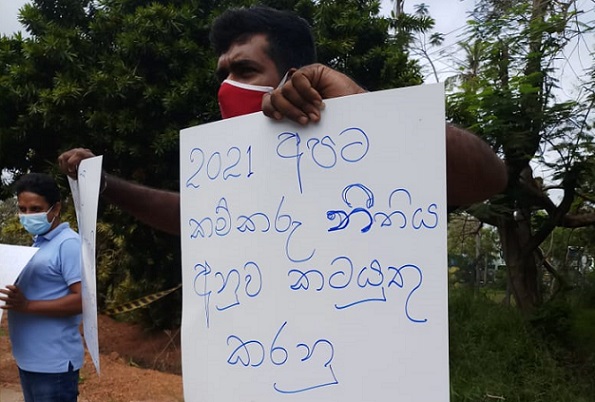 2021 අපට
කම්කරු නීතිය
අනුව කටයුතු
කරනු